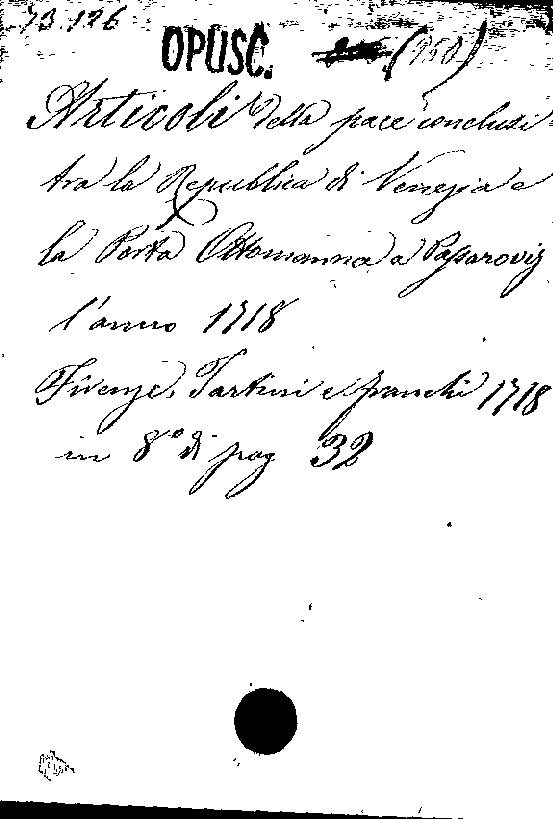 73.126
OPUSC. (950)
Articoli della pace conclusi
tra la Repubblica di Venezia e
la Porta Ottomanna a Passaroviz
l'anno 1718
Firenze. Tartini e franchi 1718
in 8° di pag 32